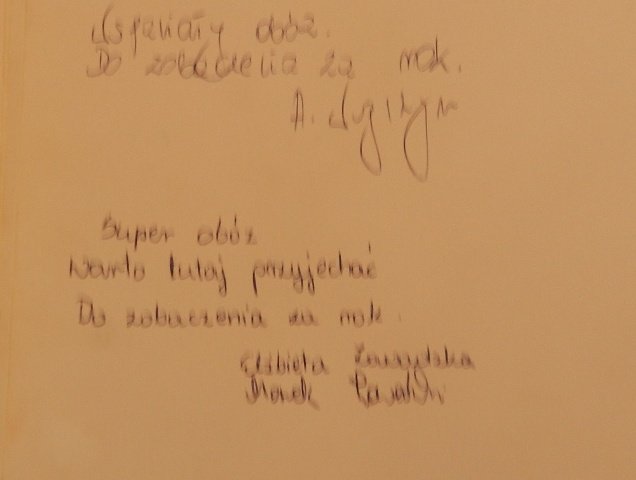 Wspaniały obóz.
Do zobaczenia za rok.
A.
Super obóz
Warto tutaj przyjechać
Do zobaczenia za rok.
Elżbieta
Marek